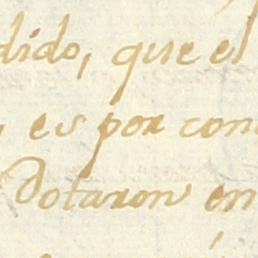 dido, que el
es por con
Dotaron en